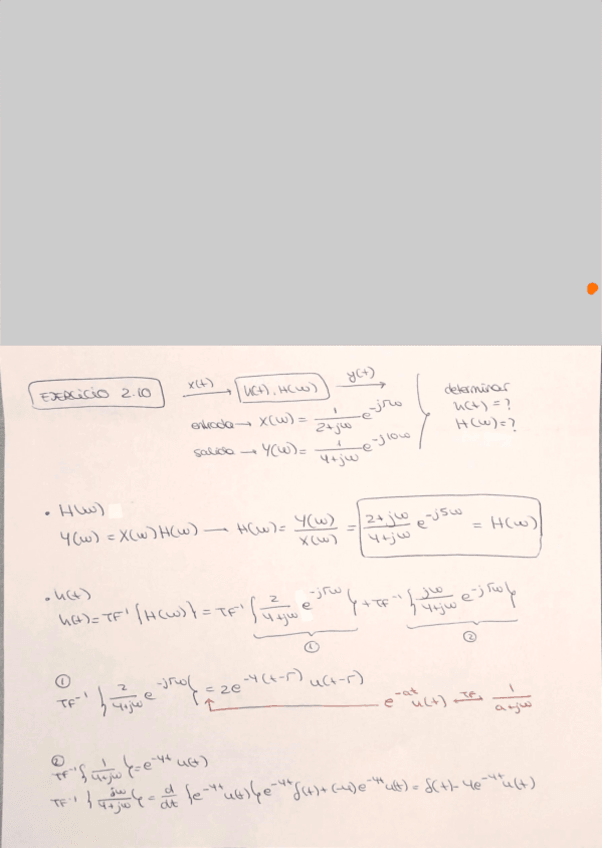 EJERCICIO 2.10
x(t) → h(t), H(ω) → y(t)
entrada → X(ω) = 1/(2+jω) e^-j5ω
salida → Y(ω) = 1/(4+jω) e^-j10ω
determinar
h(t) = ?
H(ω) = ?
• H(ω)
Y(ω) = X(ω)H(ω) → H(ω) = Y(ω)/X(ω) = (2+jω)/(4+jω) e^-j5ω = H(ω)
• h(t)
h(t) = TF⁻¹{H(ω)} = TF⁻¹{2/(4+jω) e^-j5ω} + TF⁻¹{jω/(4+jω) e^-j5ω}
① ②
①
TF⁻¹{2/(4+jω) e^-j5ω} = 2e^-4(t-5) u(t-5)
e^-at u(t) ↔TF 1/(a+jω)
②
TF⁻¹{1/(4+jω)} = e^-4t u(t)
TF⁻¹{jω/(4+jω)} = d/dt {e^-4t u(t)} e^-4t δ(t) + (-4)e^-4t u(t) = δ(t) - 4e^-4t u(t)